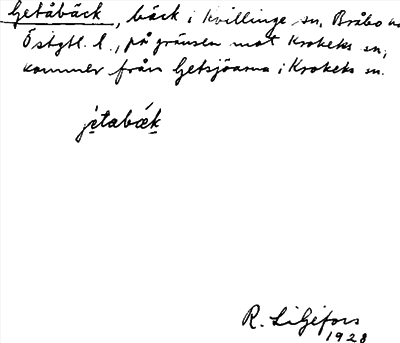 Getåbäck, bäck i Kvillinge sn, Bråbo
Östgtl. l., på gränsen mot Krokeks sn,
kommer från Getsjöarna i Krokeks sn.
jètabæ̀k
R. Liljefors
1928